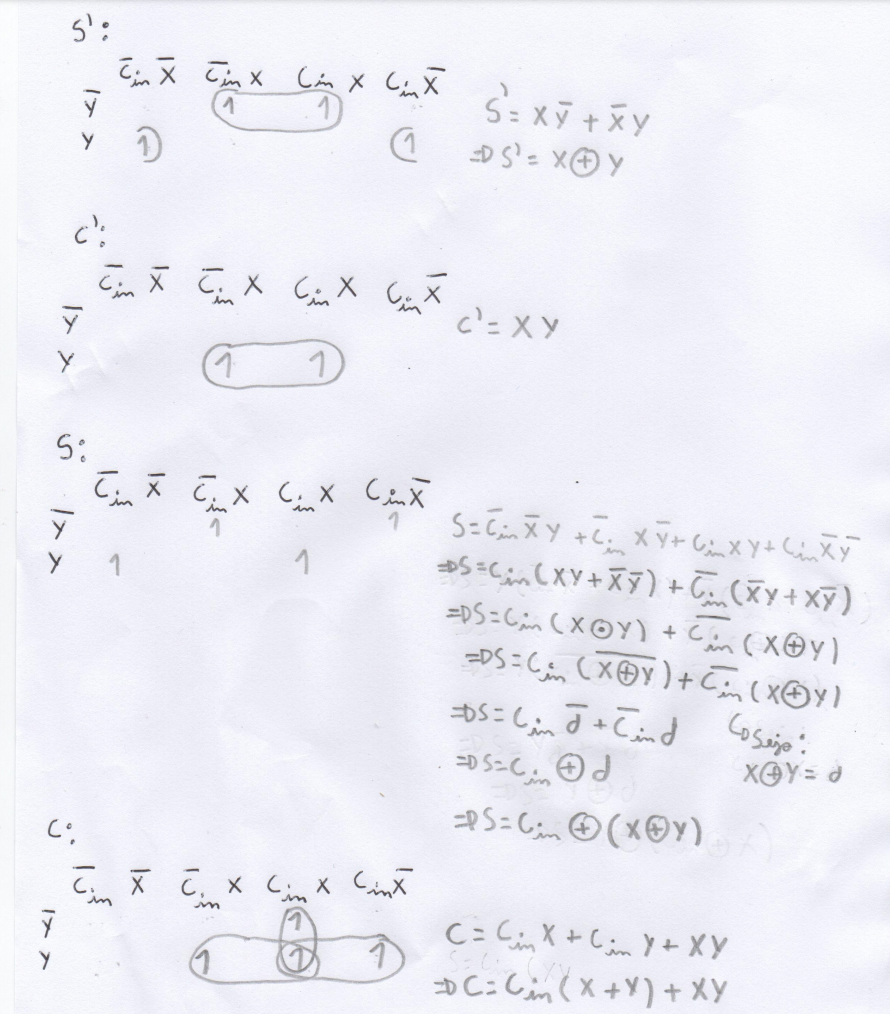 S':
C̄in X̄ C̄in X Cin X Cin X̄
Ȳ 1 1
Y 1 1
S' = XȲ + X̄Y
⇒ S' = X⊕Y
C':
C̄in X̄ C̄in X Cin X Cin X̄
Ȳ
Y 1 1
C' = XY
S:
C̄in X̄ C̄in X Cin X Cin X̄
Ȳ 1 1
Y 1 1
S = C̄in X̄ Y + C̄in X Ȳ + Cin X Y + Cin X̄ Ȳ
⇒ S = Cin (XY + X̄Ȳ) + C̄in (X̄Y + XȲ)
⇒ S = Cin (X⊙Y) + C̄in (X⊕Y)
⇒ S = Cin (X̅⊕̅Y̅) + C̄in (X⊕Y)
⇒ S = Cin d̄ + C̄in d Seja:
⇒ S = Cin ⊕ d X⊕Y = d
⇒ S = Cin ⊕ (X⊕Y)
C:
C̄in X̄ C̄in X Cin X Cin X̄
Ȳ 1
Y 1 1 1
C = Cin X + Cin Y + XY
⇒ C = Cin (X + Y) + XY